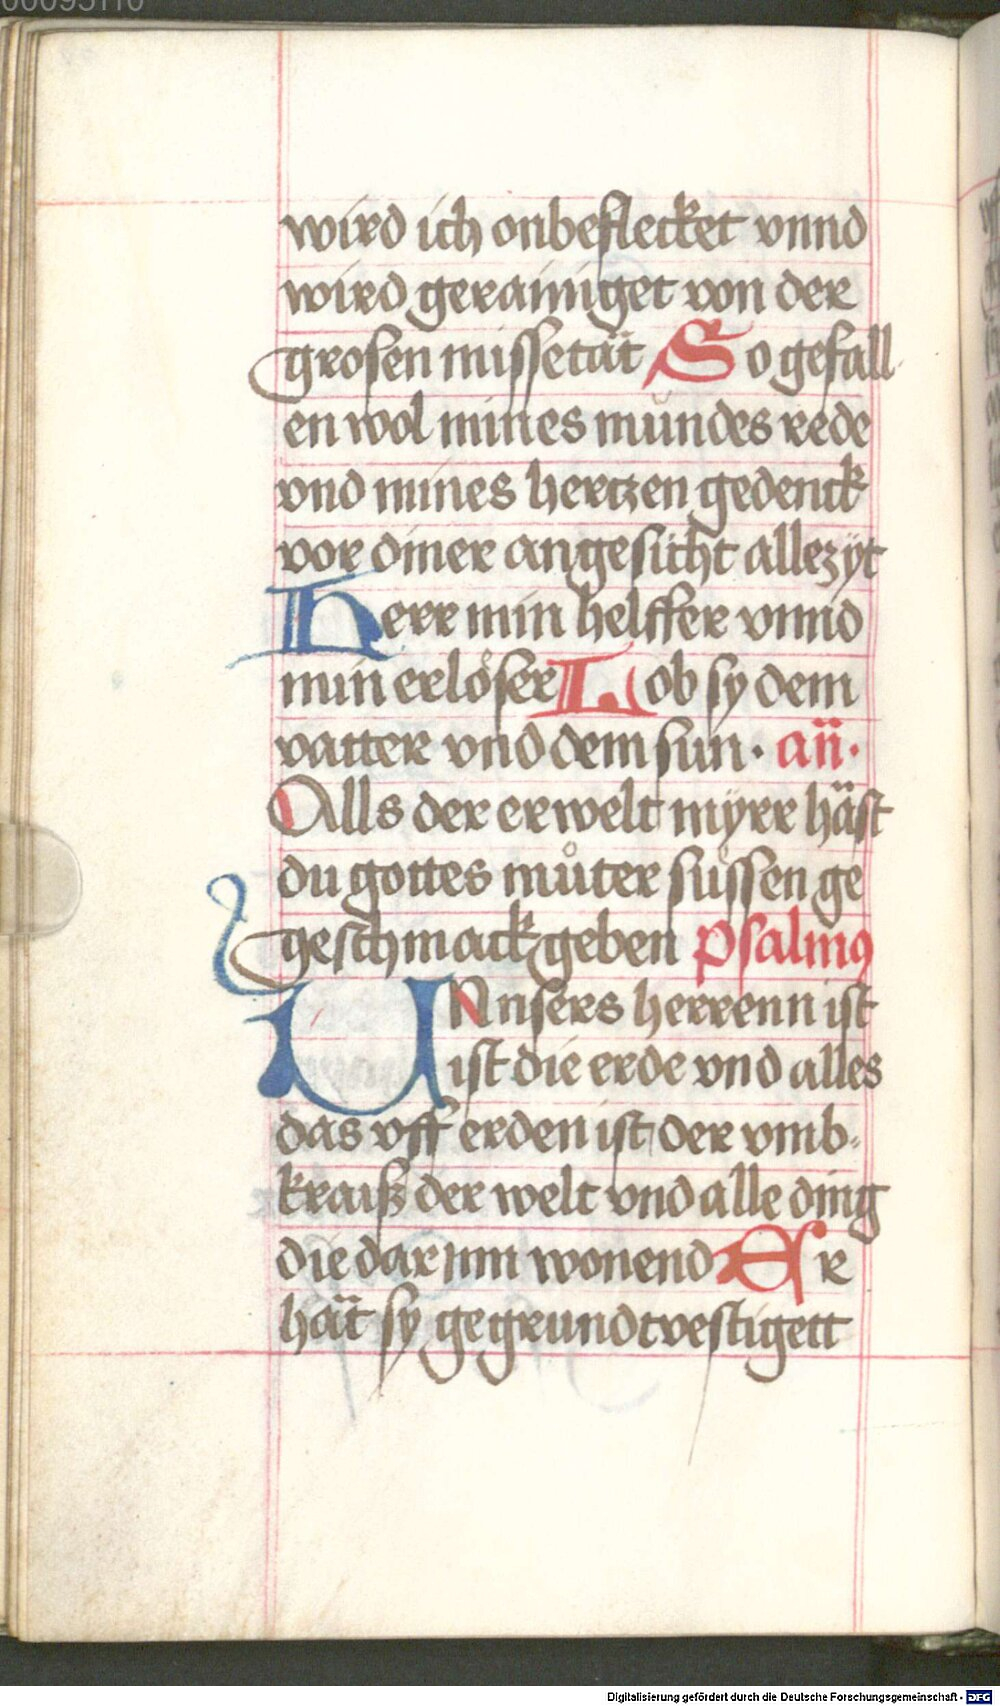 00095110
wird ich onbeflecket vnnd
wird gerainiget von der
grosen missetät So gefall
en wol mines mŭndes rede
vnd mines hertzen gedenck
vor diner angesicht allezÿt
Herr min helffer vnnd
min erlöser Lob sy dem
vatter vnd dem sun· an̈·
Alls der erwelt mÿrr häst
du gottes mů̈ter süssen ge
geschmack geben psalmꝰ
UNnsers herrenn ist
ist die erde vnd alles
das vff erden ist der vmb-
kraiß der welt vnd alle ding
die dar jnn wonend Er
hät sy gegrundtvestigett
Digitalisierung gefördert durch die Deutsche Forschungsgemeinschaft - DFG